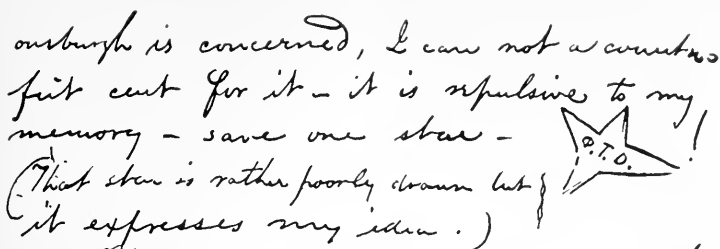 is concerned, I care not a counter=
feit cent for it – it is repulsive to my
memory – save one star – !
(That star is rather poorly drawn but
it expresses my idea.)